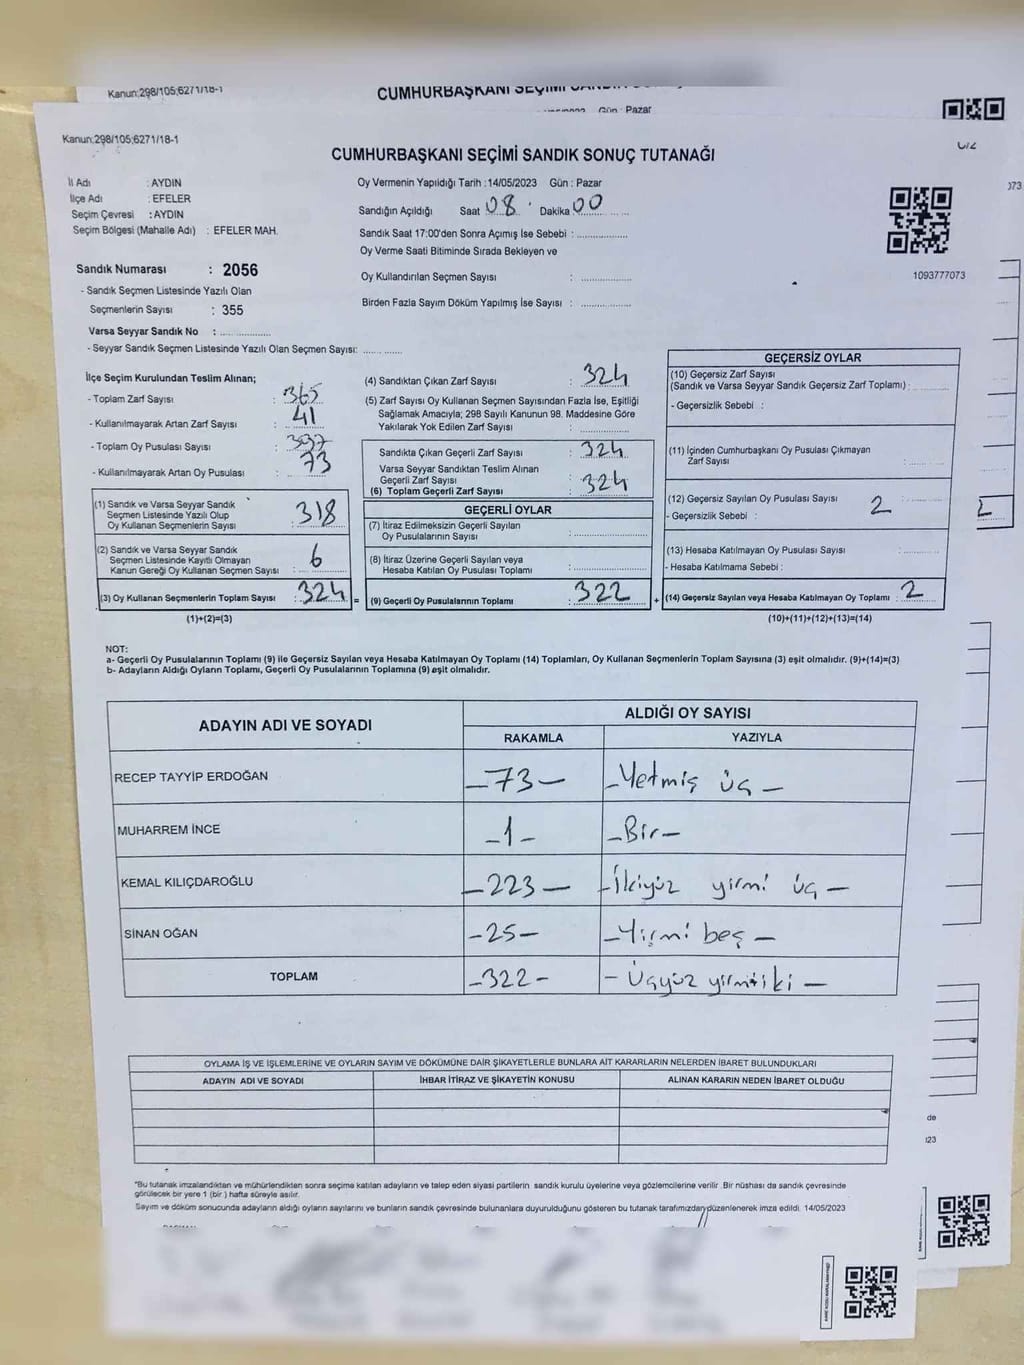 Kanun:298/105;6271/18-1
Gün : Pazar
Kanun:298/105;6271/18-1
CUMHURBAŞKANI SEÇİMİ SANDIK SONUÇ TUTANAĞI
İl Adı : AYDIN
İlçe Adı : EFELER
Seçim Çevresi : AYDIN
Seçim Bölgesi (Mahalle Adı) : EFELER MAH.
Oy Vermenin Yapıldığı Tarih :14/05/2023 Gün : Pazar
Sandığın Açıldığı Saat 08 Dakika 00
Sandık Saat 17:00'den Sonra Açımış İse Sebebi :
Oy Verme Saati Bitiminde Sırada Bekleyen ve
Oy Kullandırılan Seçmen Sayısı :
Birden Fazla Sayım Döküm Yapılmış İse Sayısı :
1093777073
Sandık Numarası : 2056
- Sandık Seçmen Listesinde Yazılı Olan
Seçmenlerin Sayısı : 355
Varsa Seyyar Sandık No :
- Seyyar Sandık Seçmen Listesinde Yazılı Olan Seçmen Sayısı:
İlçe Seçim Kurulundan Teslim Alınan;
- Toplam Zarf Sayısı : 365
- Kullanılmayarak Artan Zarf Sayısı : 41
- Toplam Oy Pusulası Sayısı : 397
- Kullanılmayarak Artan Oy Pusulası : 73
(1) Sandık ve Varsa Seyyar Sandık
Seçmen Listesinde Yazılı Olup
Oy Kullanan Seçmenlerin Sayısı : 318
(2) Sandık ve Varsa Seyyar Sandık
Seçmen Listesinde Kayıtlı Olmayan
Kanun Gereği Oy Kullanan Seçmen Sayısı : 6
(3) Oy Kullanan Seçmenlerin Toplam Sayısı : 324
(1)+(2)=(3)
(4) Sandıktan Çıkan Zarf Sayısı : 324
(5) Zarf Sayısı Oy Kullanan Seçmen Sayısından Fazla İse, Eşitliği
Sağlamak Amacıyla; 298 Sayılı Kanunun 98. Maddesine Göre
Yakılarak Yok Edilen Zarf Sayısı :
Sandıkta Çıkan Geçerli Zarf Sayısı : 324
Varsa Seyyar Sandıktan Teslim Alınan
Geçerli Zarf Sayısı :
(6) Toplam Geçerli Zarf Sayısı : 324
GEÇERLİ OYLAR
(7) İtiraz Edilmeksizin Geçerli Sayılan
Oy Pusulalarının Sayısı :
(8) İtiraz Üzerine Geçerli Sayılan veya
Hesaba Katılan Oy Pusulası Toplamı :
= (9) Geçerli Oy Pusulalarının Toplamı : 322
GEÇERSİZ OYLAR
(10) Geçersiz Zarf Sayısı
(Sandık ve Varsa Seyyar Sandık Geçersiz Zarf Toplamı) :
- Geçersizlik Sebebi :
(11) İçinden Cumhurbaşkanı Oy Pusulası Çıkmayan
Zarf Sayısı :
(12) Geçersiz Sayılan Oy Pusulası Sayısı : 2
- Geçersizlik Sebebi :
(13) Hesaba Katılmayan Oy Pusulası Sayısı :
- Hesaba Katılmama Sebebi :
+ (14) Geçersiz Sayılan veya Hesaba Katılmayan Oy Toplamı : 2
(10)+(11)+(12)+(13)=(14)
NOT:
a- Geçerli Oy Pusulalarının Toplamı (9) ile Geçersiz Sayılan veya Hesaba Katılmayan Oy Toplamı (14) Toplamları, Oy Kullanan Seçmenlerin Toplam Sayısına (3) eşit olmalıdır. (9)+(14)=(3)
b- Adayların Aldığı Oyların Toplamı, Geçerli Oy Pusulalarının Toplamına (9) eşit olmalıdır.
ADAYIN ADI VE SOYADI ALDIĞI OY SAYISI
RAKAMLA YAZIYLA
RECEP TAYYİP ERDOĞAN -73- -Yetmiş üç-
MUHARREM İNCE -1- -Bir-
KEMAL KILIÇDAROĞLU -223- -İkiyüz yirmi üç-
SİNAN OĞAN -25- -Yirmi beş-
TOPLAM -322- -Üçyüz yirmiiki-
OYLAMA İŞ VE İŞLEMLERİNE VE OYLARIN SAYIM VE DÖKÜMÜNE DAİR ŞİKAYETLERLE BUNLARA AİT KARARLARIN NELERDEN İBARET BULUNDUKLARI
ADAYIN ADI VE SOYADI İHBAR İTİRAZ VE ŞİKAYETİN KONUSU ALINAN KARARIN NEDEN İBARET OLDUĞU
"Bu tutanak imzalandıktan ve mühürlendikten sonra seçime katılan adayların ve talep eden siyasi partilerin sandık kurulu üyelerine veya gözlemcilerine verilir .Bir nüshası da sandık çevresinde
görülecek bir yere 1 (bir ) hafta süreyle asılır.
Sayım ve döküm sonucunda adayların aldığı oyların sayılarını ve bunların sandık çevresinde bulunanlara duyurulduğunu gösteren bu tutanak tarafımızdan düzenlenerek imza edildi. 14/05/2023